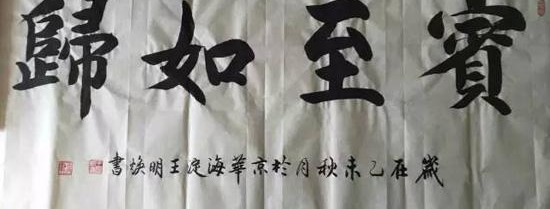 賓至如歸
歲在己未秋月於京華海淀王明煥書